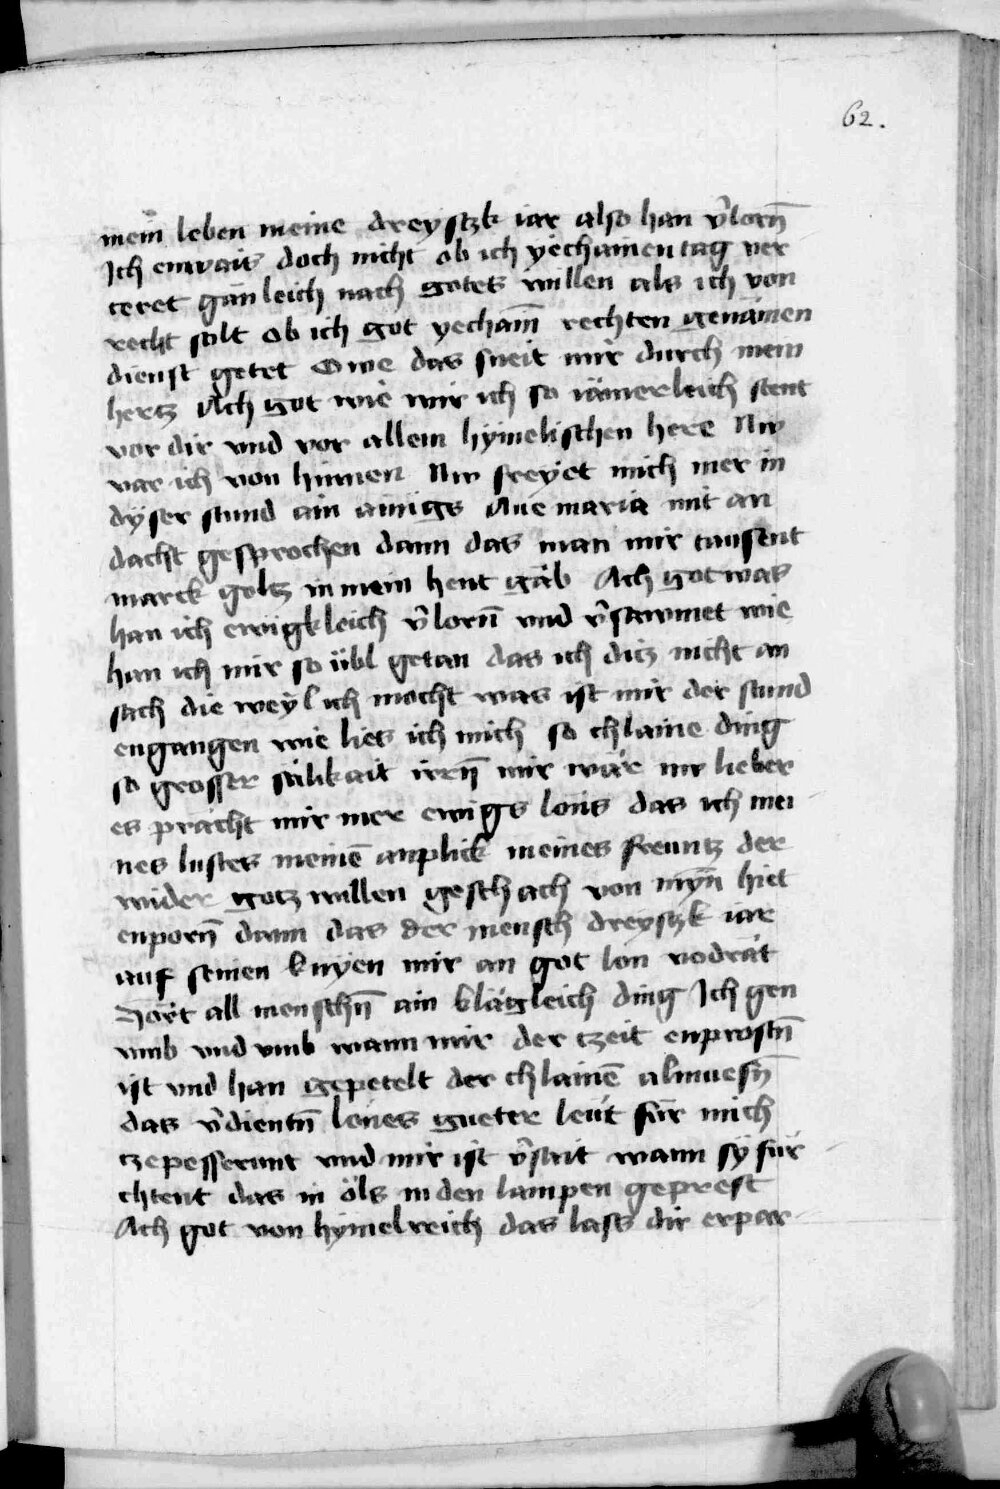 62.
mein leben meine dreysczk iar also han v̄lorn̄
Ich enwais doch nicht ob ich yechainen tag ver
ceret gänleich nach gotes willen als ich von
recht solt Ob ich got yechain̄ rechten genämen
dienst getet Owe das sneit mir durch mein
hertz Ach got wie wir ich so iämerleich stent
vor dir vnd vor allem hymelischen here Nw
var ich von hinnen Nw freyet mich mer in
dyser stund ain ainigs Aue maria mit an
dacht gesprochen dann das man mir tausent
marck goltz in mein hent gäb Ach got was
han ich ewigkleich v̄lorn̄ vnd v̄sawmet wie
han ich mir so übl getan das ich ditz nicht an
sach die weyl ich mocht was ist mir der stund
engangen wie lies ich mich so chlaine ding
so grosser sälikait irrn̄ mir wär nw lieber
es pracht mir mer ewigs lons das ich mei
nes lustes meinē anplick meines freuntz der
wider gotz willen geschach von mȳn hiet
enporn̄ dann das der mensch dreysczk iar
auf seinen knyen mir an got lon vodrät
Hört all menschn̄ ain klägleich ding Ich gen
vmb vnd vmb wann mir der tzeit enprostn̄
ist vnd han gepetelt der chlainē almuesn̄
das v̄dientn̄ lones gueter leüt für mich
tzepesserunt vnd mir ist v̄sait wann sy für
chtent das in öls in den lampen geprest
Ach got von hymelreich das lass dir erpar